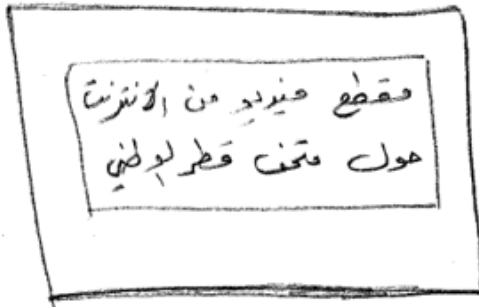 مقطع فيديو من الانترنت
حول متحف قطر الوطني